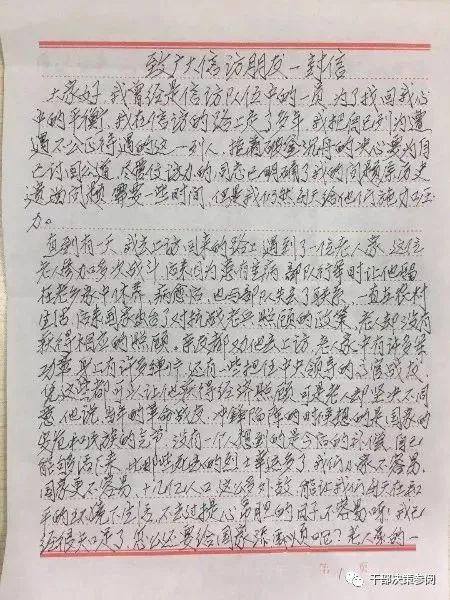 致广大信访朋友一封信
大家好，我曾经是信访队伍中的一员，为了找回我心
中的平衡，我在信访的路上走了多年，我把自己列为遭
遇不公正待遇的这一列人，抱着破釜沉舟的决心要为自
己讨回公道，尽管信访办的同志已明确了我的问题系历史
遗留问题 需要一些时间，但是我仍然到天给他们施加压
力。
直到有一天，我去上访回来的路上遇到了一位老人家，这位
老人参加多次战斗，后来因为系有重病，部队行军时让他留
在老乡家中休养，病愈后，也与部队失去了联系，一直在农村
生活，后来国家出台了对抗战老兵照顾的政策，老人却没有
获得相应的照顾。亲友都劝他去上访，老人家中有许多军
功章，其上内许多弹片，还有一些担任中央领导的首信战友，
凭这些都可以让他获得经济照顾，可是老人却坚决不同
意，他说，当年的革命战友，冲锋陷阵的时候想的是国家的
安危和民族的气节，没有一个人想到的是今后的补偿，自己
能够活下来，比那些死去的烈士幸运多了，我们小家不容易，
国家更不容易，十几亿人口，这么多外敌，能让我们每天在和
平的环境下生活，不去过提心吊胆的日子，不容易啊，我已
经信天口中了，怎么还要给国家添麻烦呢？老人家的一
第1页
干部决策参阅